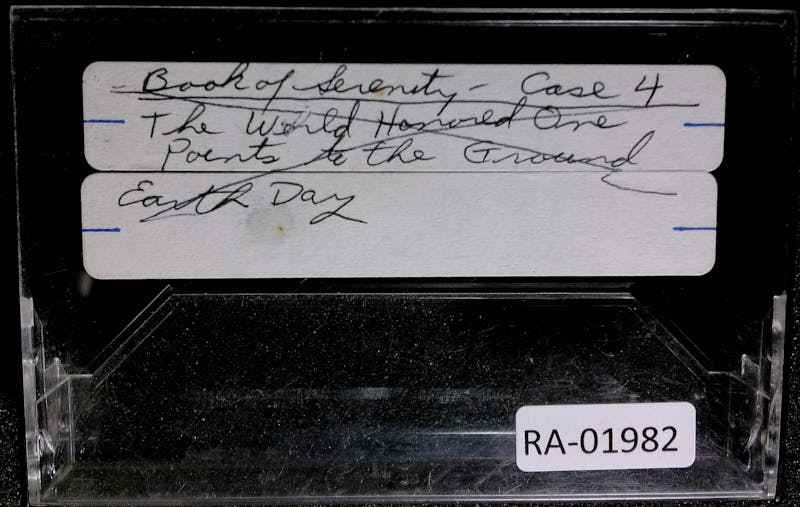 Book of Serenity - Case 4
The World Honored One
Points to the Ground
Earth Day
RA-01982